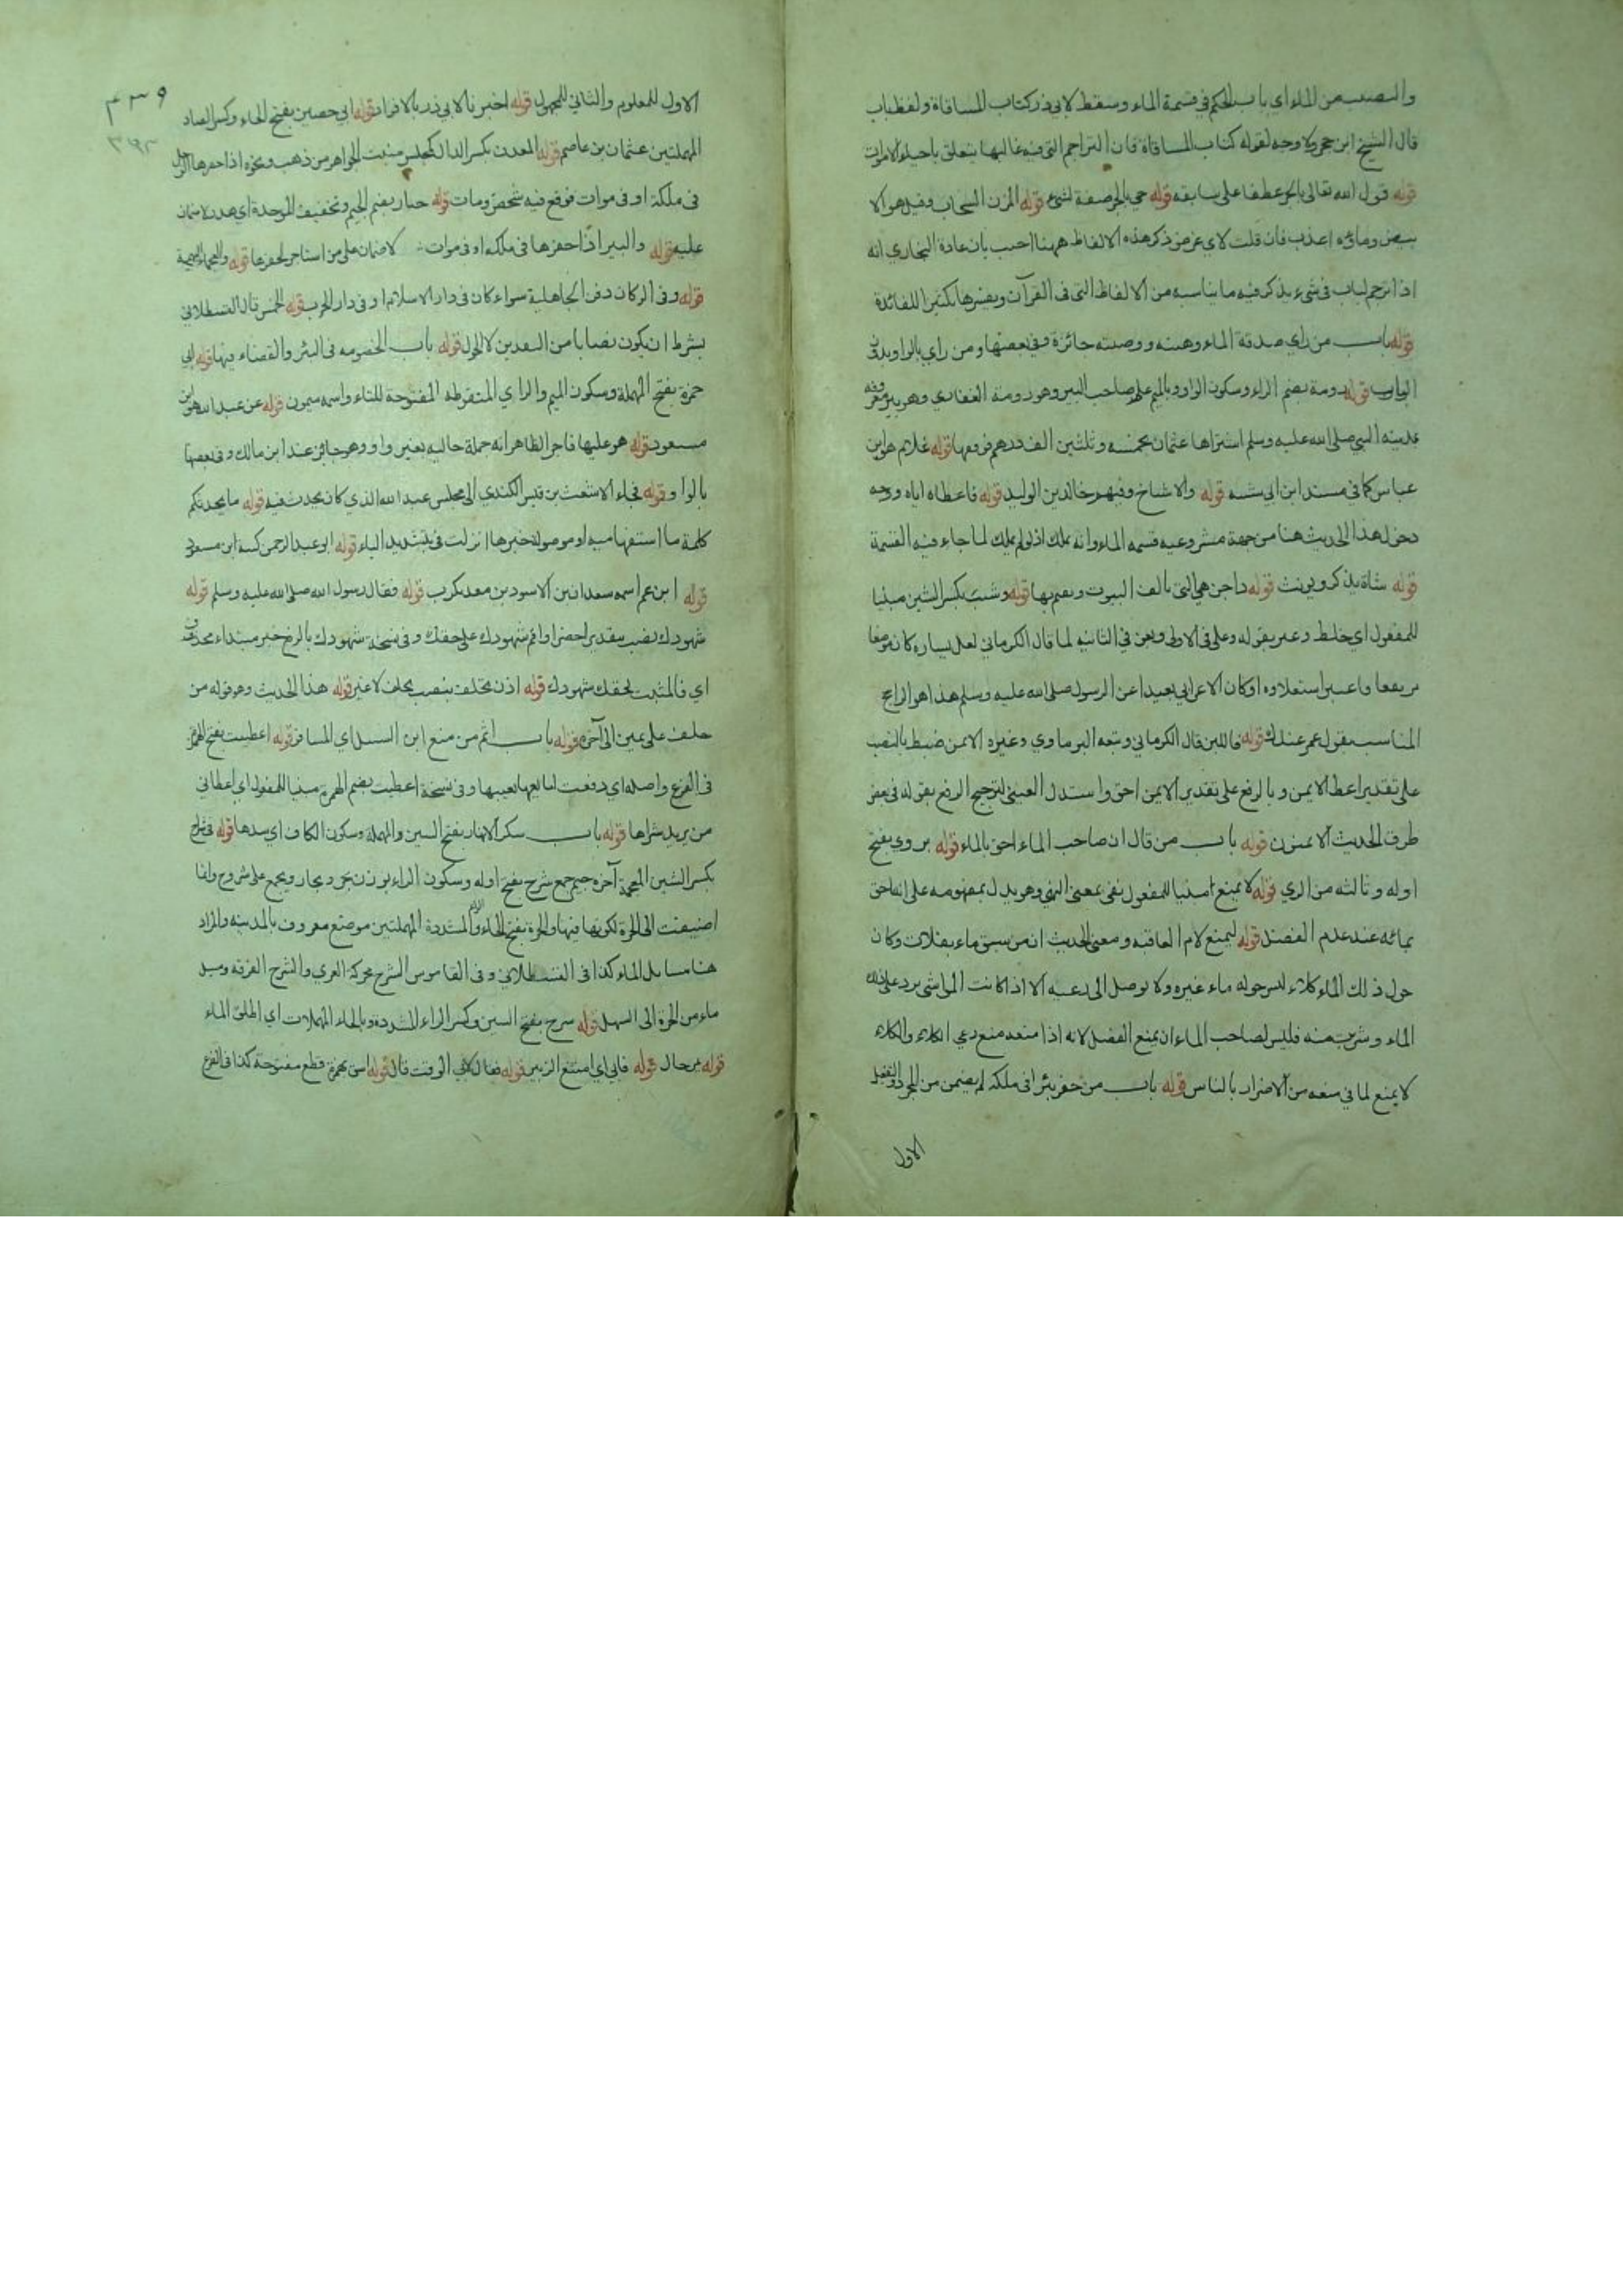 والنصيب من الماء اي باب الحكم في قسمة الماء وسقط لابي ذر كتاب المساقاة ولفظ باب
قال الشيخ ابن حجر ولا وجه لقوله كتاب المساقاة فان التراجم التي فيه غالبها يتعلق باحياء الاموات
قوله قول الله تعالى بالجر عطفا على سابقه قوله حي بالجر صفة لشيء قوله المزن السحاب وقيل هو الا
بيض وماؤه اعذب فان قلت لاي غرض ذكر هذه الالفاظ ههنا اجيب بان عادة البخاري انه
اذا ترجم لباب في شيء يذكر فيه ما يناسبه من الالفاظ التي في القرآن ويفسرها تكثيرا للفائدة
قوله باب من راي صدقة الماء وهبته ووصيته جائزة وفي بعضها ومن راي بالواو بدون
الباب قوله رومة بضم الراء وسكون الواو وبالميم علم صاحب البير وهو رومة الغفاري وهو بير معروفه
بمدينه النبي صلى الله عليه وسلم اشتراها عثمان بخمسه وثلثين الف درهم فوقفها قوله غلام هو ابن
عباس كما في مسند ابن ابي شيبه قوله والاشياخ وفيهم خالد بن الوليد قوله فاعطاه اياه ووجه
دخول هذا الحديث هنا من جهة مشروعيه قسمه الماء وانه يملك اذ لو لم يملك لما جاء فيه القسمة
قوله شاة يذكر ويونث قوله داجن هي التي يالف البيوت ويقيم بها قوله وشيب بكسر الشين مبنيا
للمفعول اي خلط وعبر بقوله وعلى في الاولى وبعن في الثانيه لما قال الكرماني لعل يساره كان موضعا
مرتفعا فاعتبر استعلاوه او كان الاعرابي بعيدا عن الرسول صلى الله عليه وسلم هذا هو الراجح
المناسب بقول عمر عندك قوله فالايمن قال الكرماني وتبعه البرماوي وغيره الايمن ضبط بالنصب
على تقدير اعط الايمن وبالرفع على تقدير الايمن احق واستدل العيني لترجيح الرفع بقوله في بعض
طرق الحديث الايمنون قوله باب من قال ان صاحب الماء احق بالماء قوله يروي بفتح
اوله وثالثه من الري قوله لا يمنع مبنيا للمفعول نفي بمعنى النهي وهو يدل بمفهومه على انه احق
بمائه عند عدم الفضل قوله ليمنع لام العاقبه ومعنى الحديث ان من سبق ماء بفلات وكان
حول ذلك الماء كلاء ليس حوله ماء غيره ولا يوصل الى رعيه الا اذا كانت المواشي يرد على ذلك
الماء وشربت منه فليس لصاحب الماء ان يمنع الفضل لانه اذا منعه منع رعي الكلاء والكلاء
لا يمنع لما في منعه من الاضرار بالناس قوله باب من حفر بئرا في ملكه لم يضمن من المجرد والتفعيل
الاول
٤٣٩
الاول للمعلوم والثاني للمجهول قوله اخبرنا لابي ذر بالافراد قوله ابي حصين بفتح الحاء وكسر الصاد
المهملتين عثمان بن عاصم قوله المعدن بكسر الدال كمجلس منبت الجواهر من ذهب ونحوه اذا حفرها الرجل
في ملكه او في موات فوقع فيه شخص ومات قوله جبار بضم الجيم وتخفيف الموحدة اي هدر لا ضمان
عليه قوله والبير اذا حفرها في ملكه او في موات لا ضمان على من استاجر لحفرها قوله والعجماء البهيمة
قوله وفي الركان دفن الجاهلية سواء كان في دار الاسلام او في دار الحرب قوله الخمس قال القسطلاني
بشرط ان يكون نصابا من النقدين لا الحول قوله باب الخصومه في البئر والقضاء فيها قوله ابي
حمزة بفتح المهملة وسكون الميم والزاي المنقوطه المفتوحة للتاء واسمه ميمون قوله عن عبد الله هو ابن
مسعود قوله هو عليها فاجر الظاهر انه جملة حاليه بغير واو وهو جائز عند ابن مالك وفي بعضها
بالواو قوله فجاء الاشعث بن قيس الكندي الى مجلس عبد الله الذي كان يحدث فيه قوله ما يحدثكم
كلمة ما استفهاميه او موصولة خبرها انزلت في بتشديد الياء قوله ابو عبد الرحمن كنية ابن مسعود
قوله ابن عم اسمه معدان بن الاسود بن معد يكرب قوله فقال رسول الله صلى الله عليه وسلم قوله
شهودك نصب بتقدير احضر او اقم شهودك على حقك وفي نسخة شهودك بالرفع خبر مبتداء محذوف
اي فالمثبت لحقك شهودك قوله اذن يحلف بنصب يحلف لا غير قوله هذا الحديث وهو قوله من
حلف على يمين الى آخره قوله باب اثم من منع ابن السبيل اي المسافر قوله اعطيت بفتح الهمزة
في الفرع واصله اي دفعت لبايعها بسببها وفي نسخة اعطيت بضم الهمزة مبنيا للمفعول اي اعطاني
من يريد شراها قوله باب سكر الانهار بفتح السين والمهملة وسكون الكاف اي سدها قوله في شراج
بكسر الشين المعجمة آخره جيم جمع شرج بفتح اوله وسكون الراء بوزن بحر وبحار ويجمع على شروج وانما
اضيفت الى الحرة لكونها فيها والحرة بفتح الحاء والراء المشددة المهملتين موضع معروف بالمدينه والمراد
هنا مسايل الماء كذا في القسطلاني وفي القاموس الشرج محركة العري والشرج الفرقه ومسيل
ماء من الحرة الى السهل قوله سرح بفتح السين وكسر الراء المشددة وبالحاء المهملات اي اطلق الماء
قوله يمر حال قوله فابى اي امتنع الزبير قوله فقال لافي الوقت قال قوله اسق بهمزة قطع مفتوحة كذا في الفرع